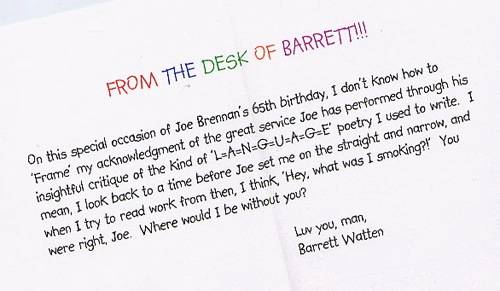 FROM THE DESK OF BARRETT!!!
On this special occasion of Joe Brennan's 65th birthday, I don't know how to
'Frame' my acknowledgment of the great service Joe has performed through his
insightful critique of the kind of 'L=A=N=G=U=A=G=E' poetry I used to write. I
mean, I look back to a time before Joe set me on the straight and narrow, and
when I try to read work from then, I think, 'Hey, what was I smoking?!' You
were right, Joe. Where would I be without you?
Luv you, man,
Barrett Watten